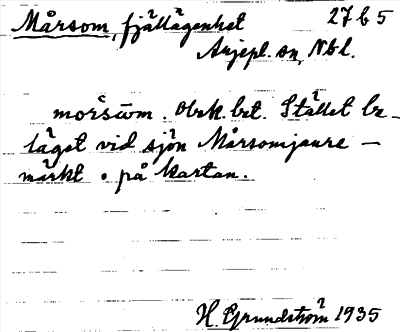 Mårsom, fjällägenhet 27 b 5
Arjepl. sn, Nbl.
moršɯm. Obek. bet. Stället be-
läget vid sjön Mårsomjaure –
märkt • på kartan.
H. Grundström 1935